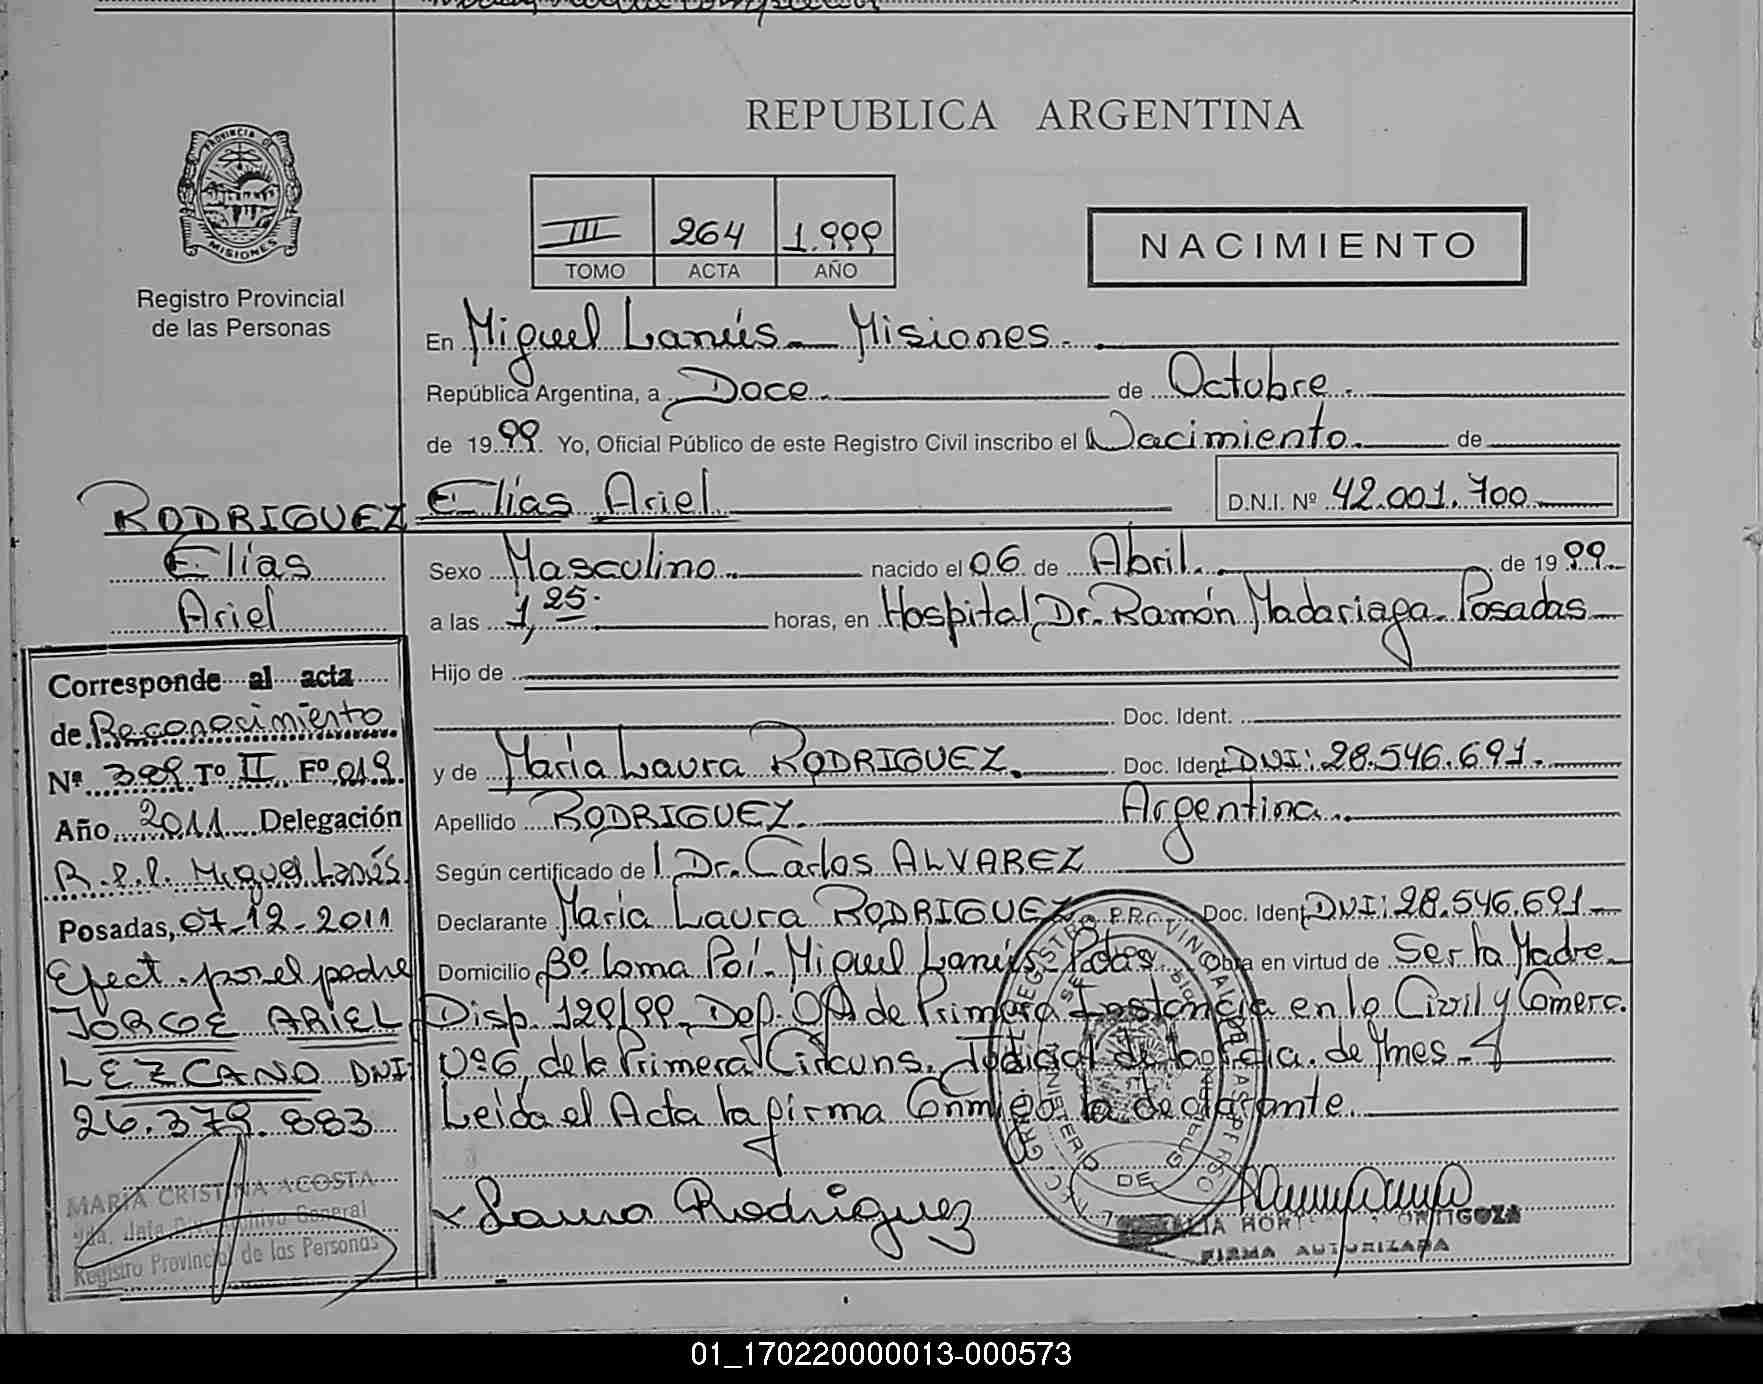 REPUBLICA ARGENTINA
PROVINCIA DE
MISIONES
Registro Provincial
de las Personas
III 264 1.999
TOMO ACTA AÑO
NACIMIENTO
En Miguel Lanús - Misiones.
República Argentina, a Doce de Octubre.
de 19 99. Yo, Oficial Público de este Registro Civil inscribo el Nacimiento. de
RODRIGUEZ Elías Ariel D.N.I. Nº 42.001.700
Elías
Ariel
Sexo Masculino. nacido el 06 de Abril. de 19 99.
a las 1,25. horas, en Hospital Dr. Ramón Madariaga - Posadas
Hijo de
Doc. Ident.
y de María Laura RODRIGUEZ. Doc. Ident DNI: 28.546.691.
Apellido RODRIGUEZ. Argentina.
Según certificado de l Dr. Carlos ALVAREZ
Declarante María Laura RODRIGUEZ Doc. Ident DNI: 28.546.691
Domicilio Bº. Loma Poí. Miguel Lanús - Pdas. Obra en virtud de Ser la Madre.
Disp. 129/99, Def. Of. de Primera Instancia en lo Civil y Comerc.
Nº6, de la Primera Circuns. Judicial de la Pcia. de Mnes.
Leída el Acta la firma Conmigo la declarante.
Laura Rodriguez
ORTIGOZA
FIRMA AUTORIZADA
Corresponde al acta
de Reconocimiento
Nº 389 Tº II Fº 019.
Año 2011 Delegación
R.P.P. Miguel Lanús.
Posadas, 07-12-2011
Efect. por el padre
JORGE ARIEL
LEZCANO DNI
26.379.883
MARIA CRISTINA ACOSTA
2da. Jefa Div. Archivo General
Registro Provincial de las Personas
01_170220000013-000573